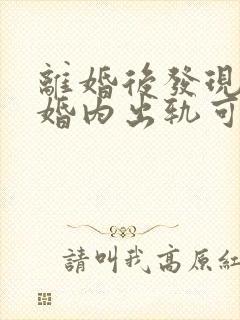 離婚後發現
婚內出軌可
請叫我高原紅